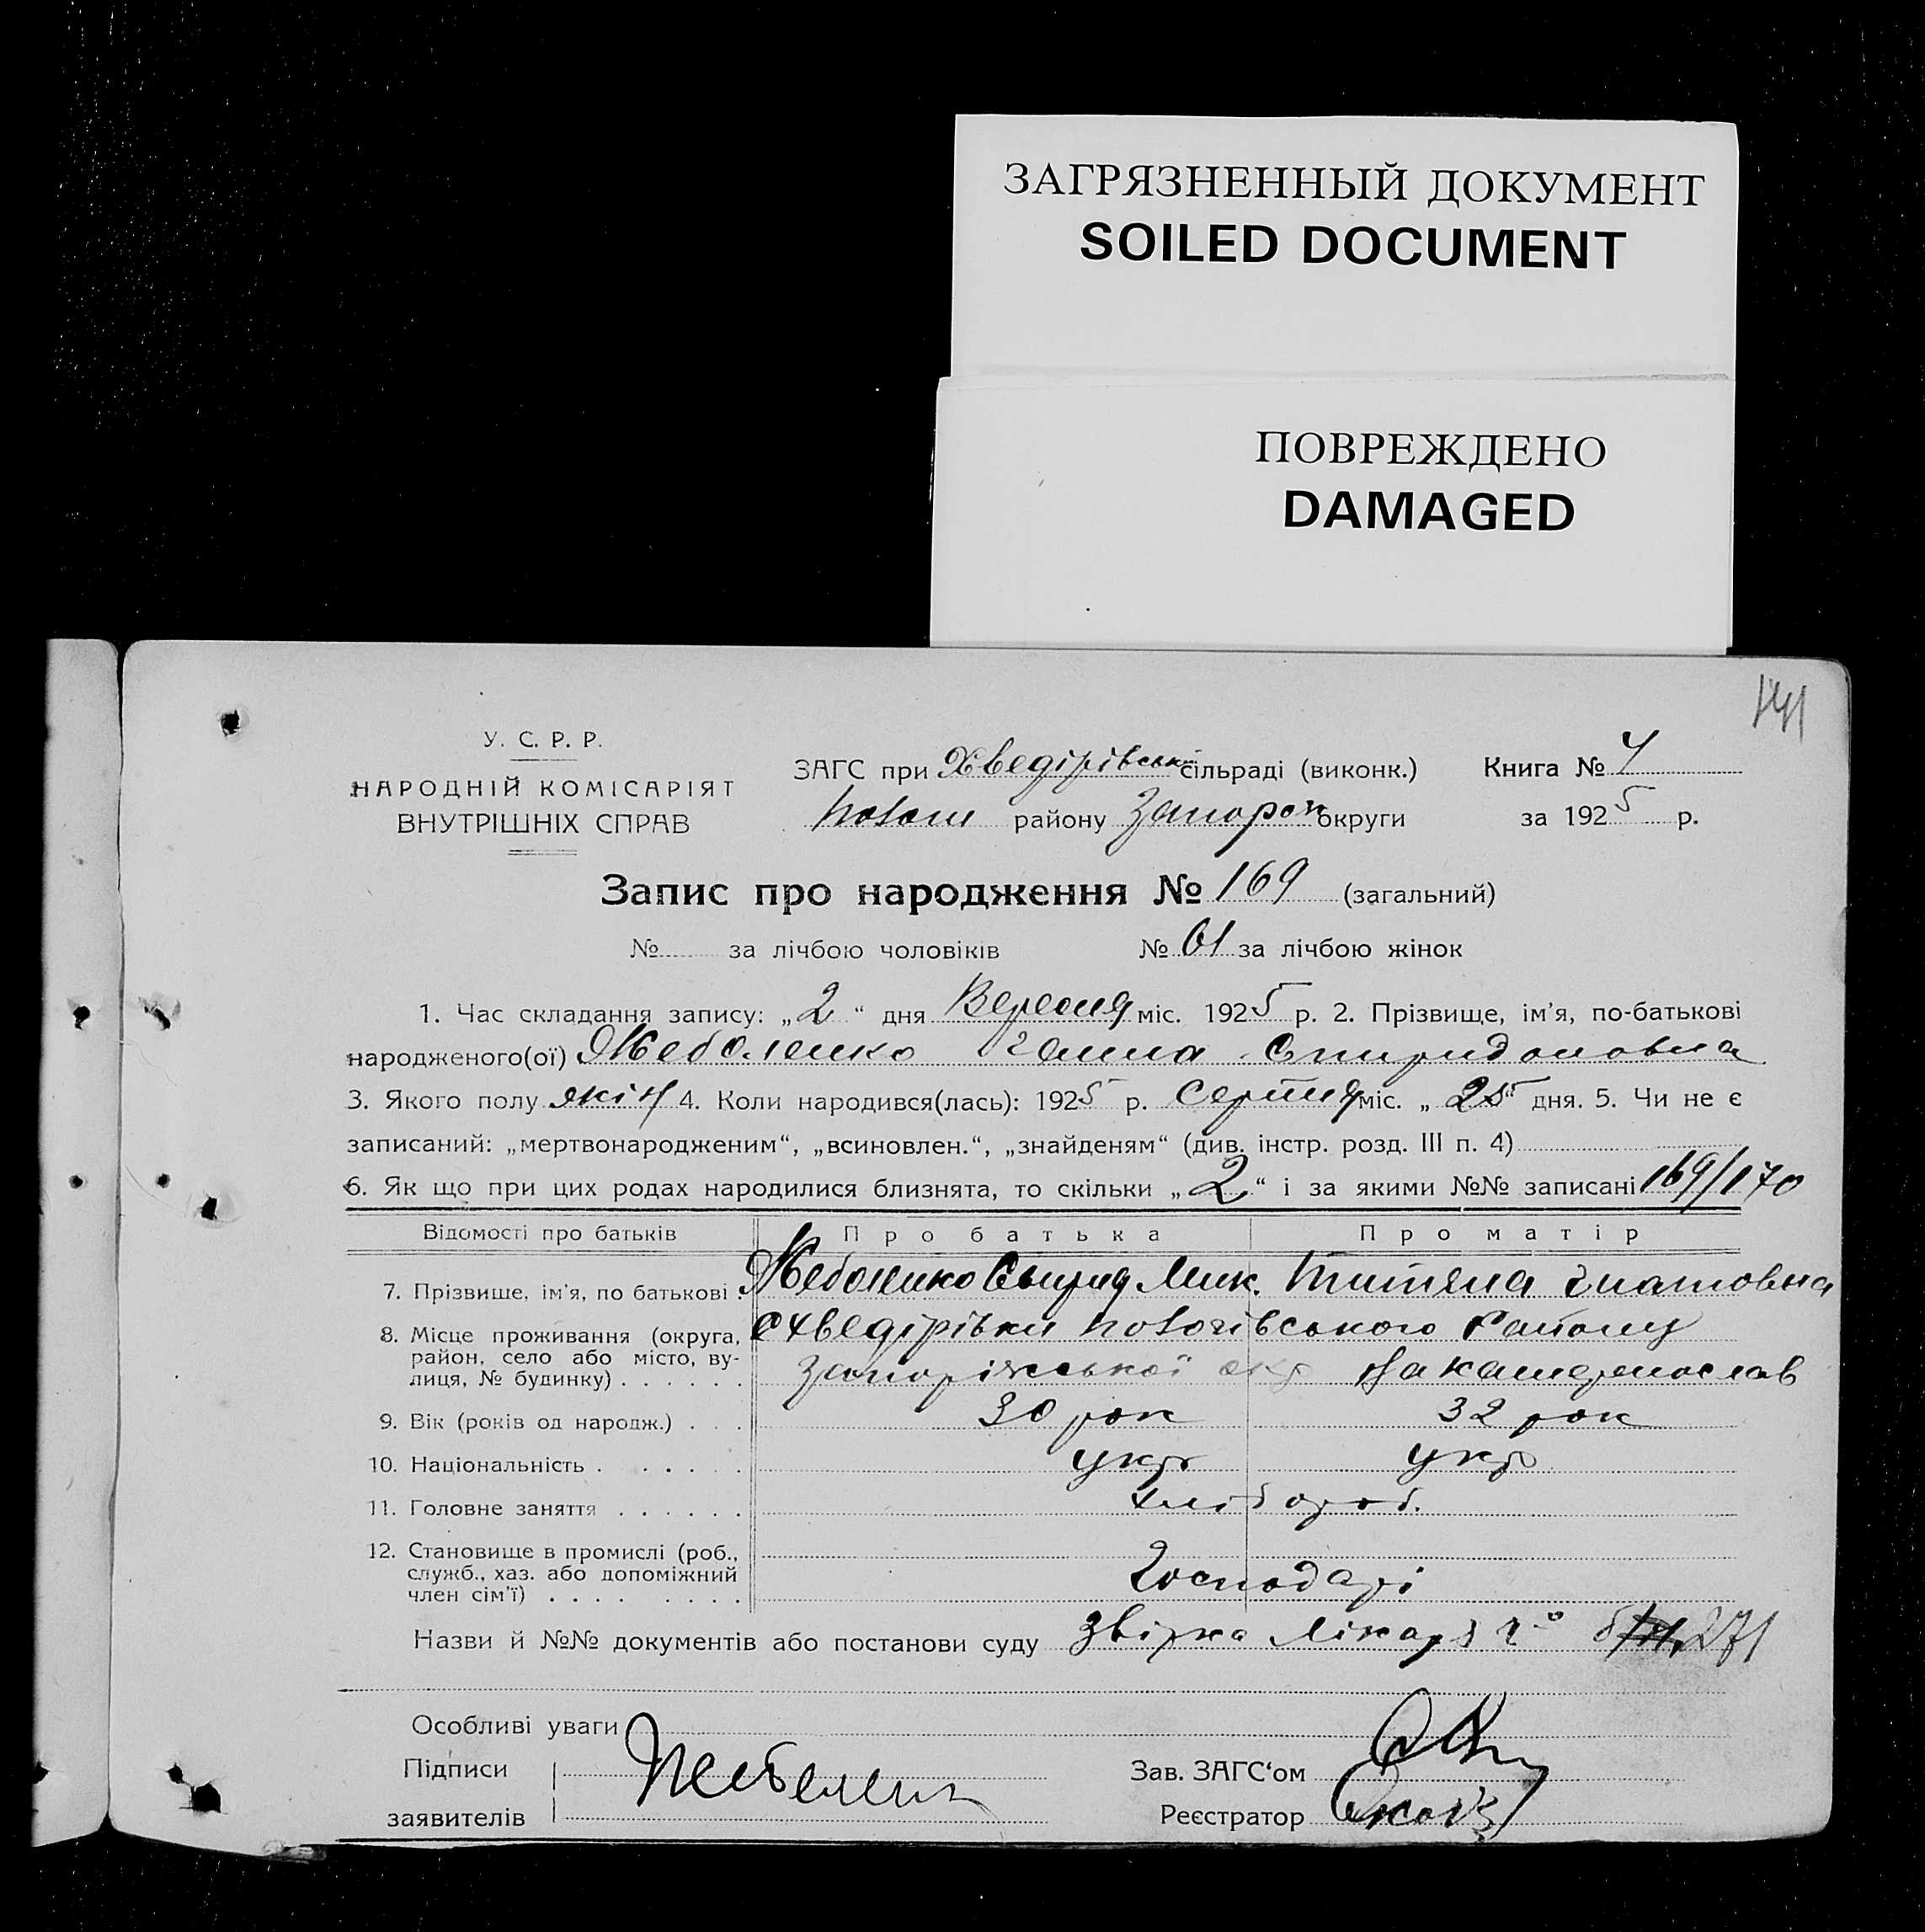 ЗАГРЯЗНЕННЫЙ ДОКУМЕНТ
SOILED DOCUMENT
ПОВРЕЖДЕНО
DAMAGED
141
У. С. Р. Р.
НАРОДНІЙ КОМІСАРІЯТ
ВНУТРІШНІХ СПРАВ
ЗАГС при Хведірівськ сільраді (виконк.) Книга № 4
району Запорож округи за 1925 р.
Запис про народження № 169 (загальний)
№ за лічбою чоловіків № 61 за лічбою жінок
1. Час складання запису: „2“ дня Вересня міс. 1925 р. 2. Прізвище, ім'я, по-батькові
народженого(ої) Жеболенко Ганна Спиридоновна
3. Якого полу жін 4. Коли народився(лась): 1925 р. Серпня міс. „25“ дня. 5. Чи не є
записаний: „мертвонародженим“, „всиновлен.“, „знайденям“ (див. інстр. розд. III п. 4)
6. Як що при цих родах народилися близнята, то скільки „2“ і за якими №№ записані 169/170
Відомості про батьків Про батька Про матір
7. Прізвище, ім'я, по батькові Жеболенко Спирид Мик. Титяна Гнатовна
8. Місце проживання (округа, с Хведірівки району
район, село або місто, ву- Запоріжської окр на катеринослав
лиця, № будинку)
9. Вік (років од народж.) 30 рок 32 рок
10. Національність укр укр
11. Головне заняття хлібороб.
12. Становище в промислі (роб.,
служб., хаз. або допоміжний Господарі
член сім'ї)
Назви й №№ документів або постанови суду звірка лікаря 271
Особливі уваги
Підписи
заявителів
Зав. ЗАГС'ом
Реєстратор